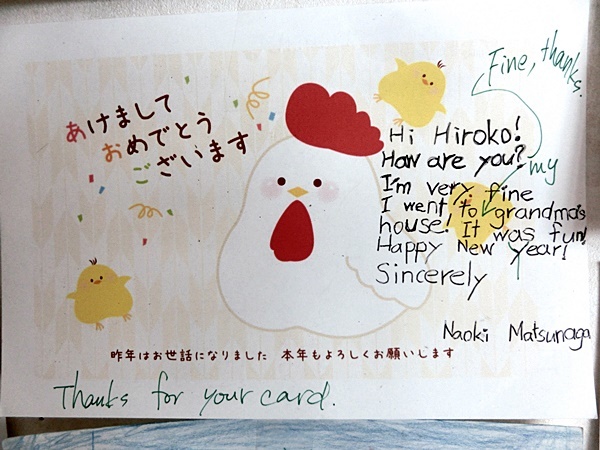 あけまして
おめでとう
ございます
Fine, thanks.
Hi Hiroko!
How are you?
my
I'm very fine
I went to grandma's
house! It was fun!
Happy New Year!
Sincerely
Naoki Matsunaga
昨年はお世話になりました 本年もよろしくお願いします
Thanks for your card.